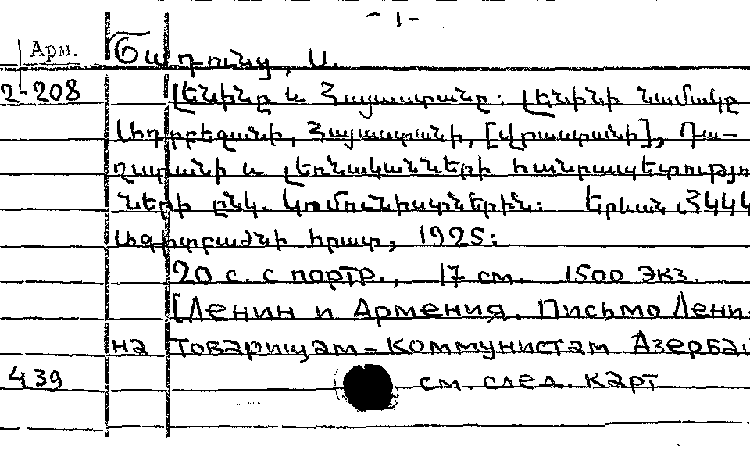 - 1 -
Арм. Շադունց, Ս.
2-208 Լենինը և Հայաստանը: Լենինի նամակը
Ադրբեջանի, Հայաստանի, [Վրաստանի], Դա-
ղստանի և լեռնականների հանրապետություն
ների ընկ. կոմունիստներին: Երևան, ՀՍԽՀ
Ագիտբաժնի հրատ, 1925:
20 с. с портр., 17 см. 1500 экз.
[Ленин и Армения. Письмо Лени-
на товарищам-коммунистам Азербай
439 см. след. карт